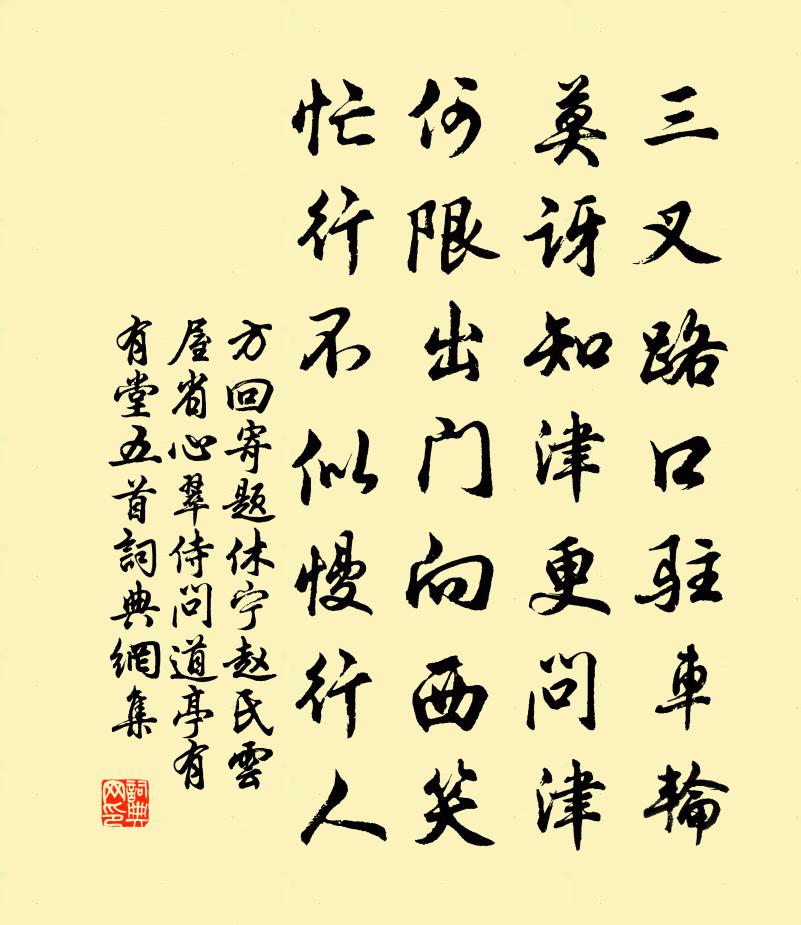 三叉路口駐車輪
莫訝知津更問津
何限出门向西笑
忙行不似慢行人
方回寄题休宁赵民雲
屋省心翠侍问道亭有
有堂五首詞典網集
詞典网印